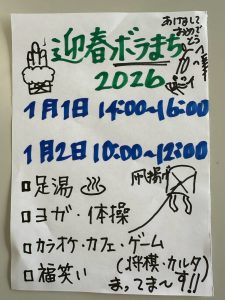 あけまして
おめで
とう
迎春ボラまち
2026
1月1日 14:00~16:00
1月2日 10:00~12:00
□足湯♨
凧揚げ
□ヨガ・体操
□カラオケ・カフェ・ゲーム
(将棋・カルタ)
□福笑い
まってま~す!!